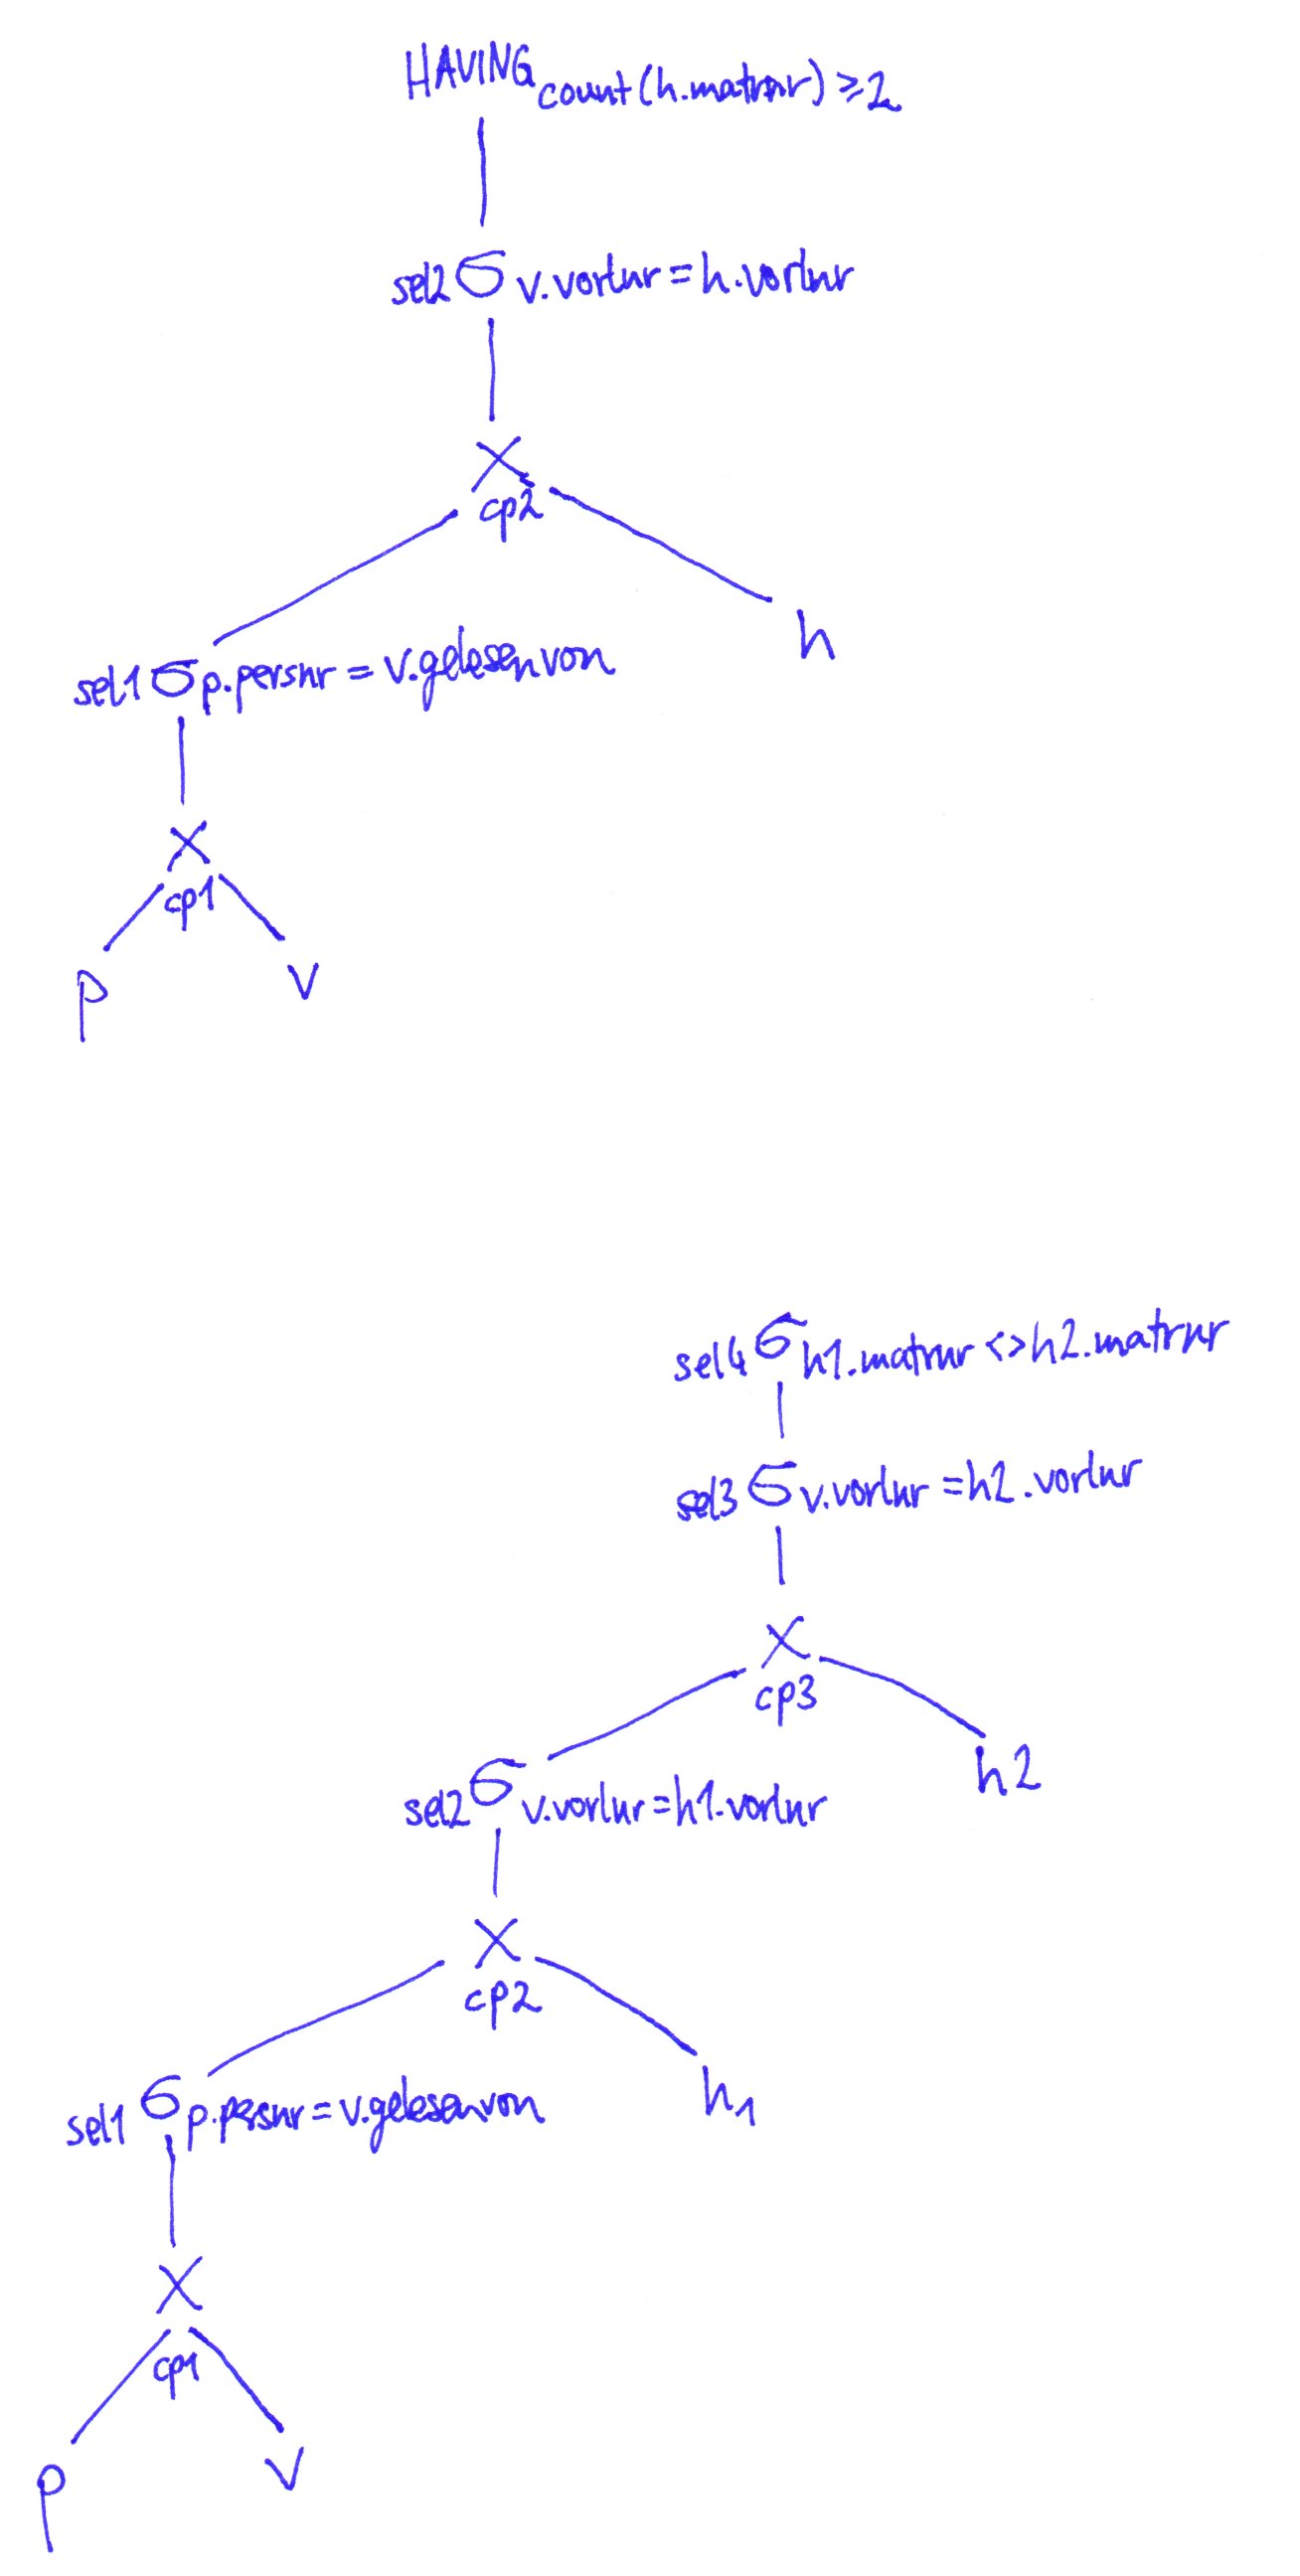 HAVING count(h.matrnr) ≥ 2
sel2 σ v.vorlnr = h.vorlnr
×
cp2
h
sel1 σ p.persnr = v.gelesenvon
×
cp1
p v
sel4 σ h1.matrnr <> h2.matrnr
sel3 σ v.vorlnr = h2.vorlnr
×
cp3
h2
sel2 σ v.vorlnr = h1.vorlnr
×
cp2
h1
sel1 σ p.persnr = v.gelesenvon
×
cp1
p v